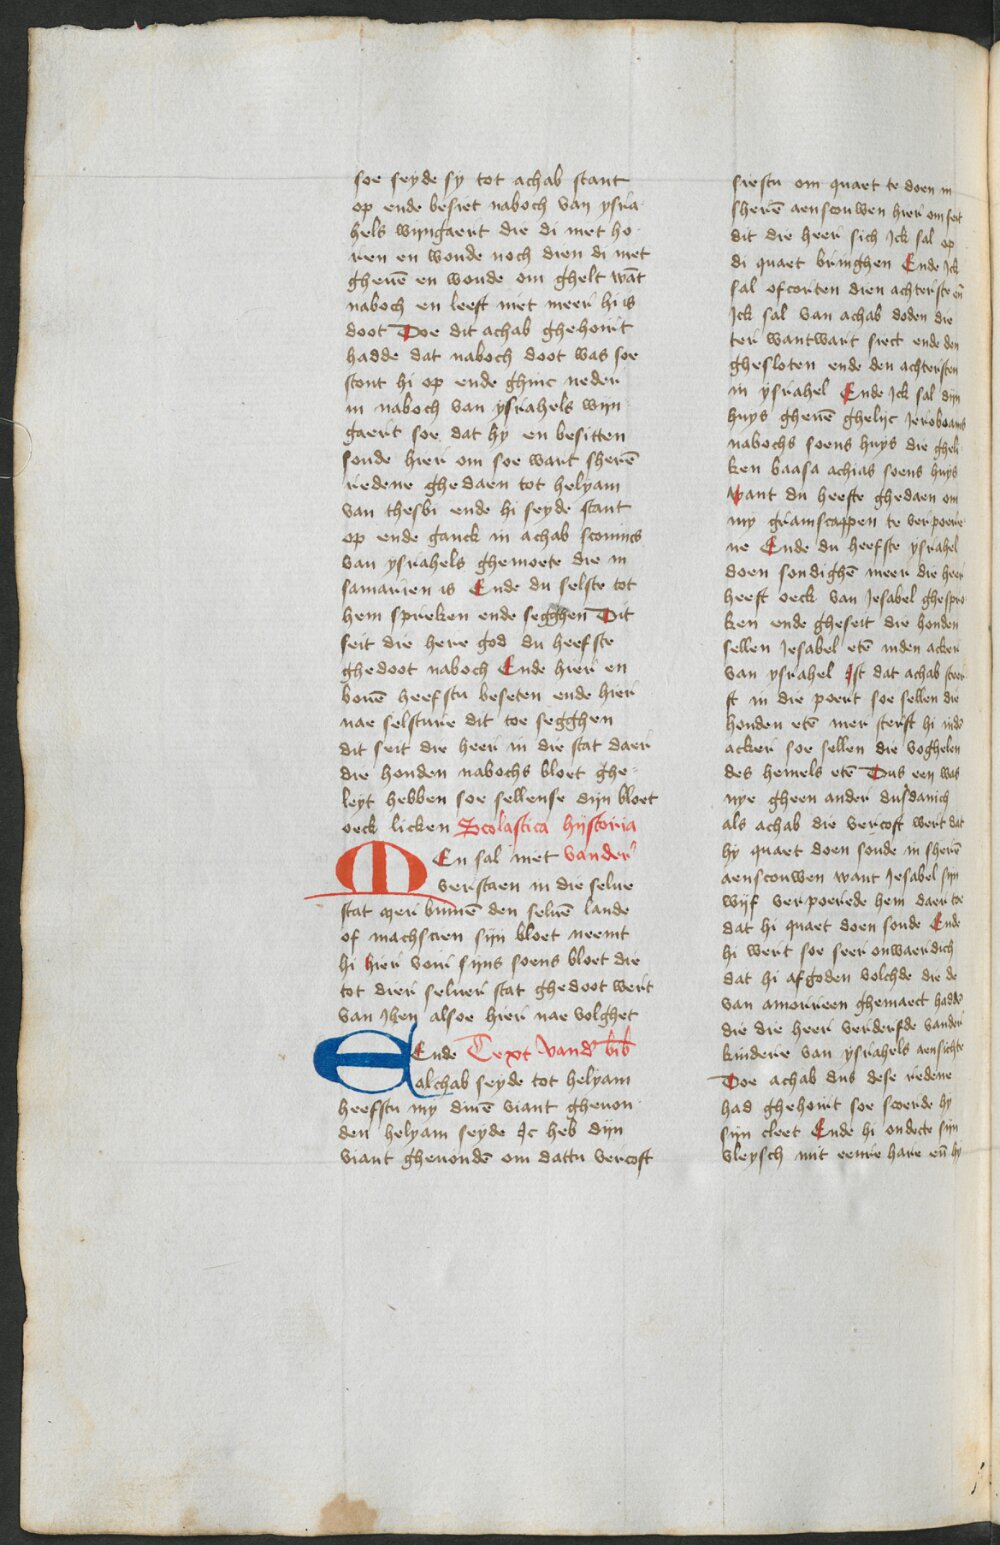 soe seyde sy tot achab stant
op ende besiet naboch van ysra
hels wijngaert die di niet ho
ren en wonde noch dien di niet
gheuē en wonde om ghelt wāt
naboch en leeft niet meer hi is
doot Doe dit achab ghehoirt
hadde dat naboch doot was soe
stont hi op ende ghinc neder
in naboch van ysrahels wijn
gaert soe dat hy en besitten
sonde hier om soe wart sherē
redene ghedaen tot helyam
van thesbi ende hi seyde stant
op ende ganck in achab sconincs
van ysrahels ghemoete die in
samarien is Ende du selste tot
hem spreken ende segghen Dit
seit die here god du heefste
ghedoot naboch Ende hier en
bouē heefstu beseten ende hier
nae selsture dit toe segghen
dit seit die heer in die stat daer
die honden nabochs bloet ghe-
leyt hebben soe sellense dijn bloet
oeck licken Scolastica hijstoria
MEn sal niet vander
verstaen in die selue
stat mer binnē den seluē lande
of machscien sijn bloet neemt
hi hier voir sijns soens bloet die
tot dier seluer stat ghedoot wert
van Jhen alsoe hier nae volghet
EEnde Text vand' bib
alchab seyde tot helyam
heefstu my dinē viant gheuon
den helyam seyde Ic heb dijn
viant gheuondē om dattu vercoft
siestu om quaet te doen in
sherē aenscouwen hier om seit
dit die heer sich Jck sal op
di quaet bringhen Ende Jck
sal ofcorten dien achterste eñ
Jck sal van achab doden die
ter wantwart siect ende den
ghesloten ende den achtersten
in ysrahel Ende Jck sal dijn
huys gheuē ghelijc Jeroboams
nabochs soens huys die gheli
ken baasa achias soens huys
want du heefste ghedaen om
my gramscappen te verpoere
ne Ende du heefste ysrahel
doen sondighē meer die heer
heeft oeck van Jesabel ghespro
ken ende gheseit die honden
sellen Jesabel etē inden acker
van ysrahel Jst dat achab steer
ft in die poert soe sellen die
honden etē mer sterft hi indē
acker soe sellen die voghelen
des hemels etē Dus een was
nye gheen ander dusdanich
als achab die vercoft wert dat
hy quaet doen soude in sherē
aenscouwen want Jesabel sijn
wijf verpoerede hem daer toe
dat hi quaet doen sonde Ende
hi wert soe seer onwaerdich
dat hi afgoden volchde die de
van amorreen ghemaect hadde
die die heer verderfde vander
kindere van ysrahels aensichte
Doe achab dus dese redene
had ghehoirt soe scoerde hy
sijn cleet Ende hi ondecte sijn
vleysch mit eenre hare eñ hy